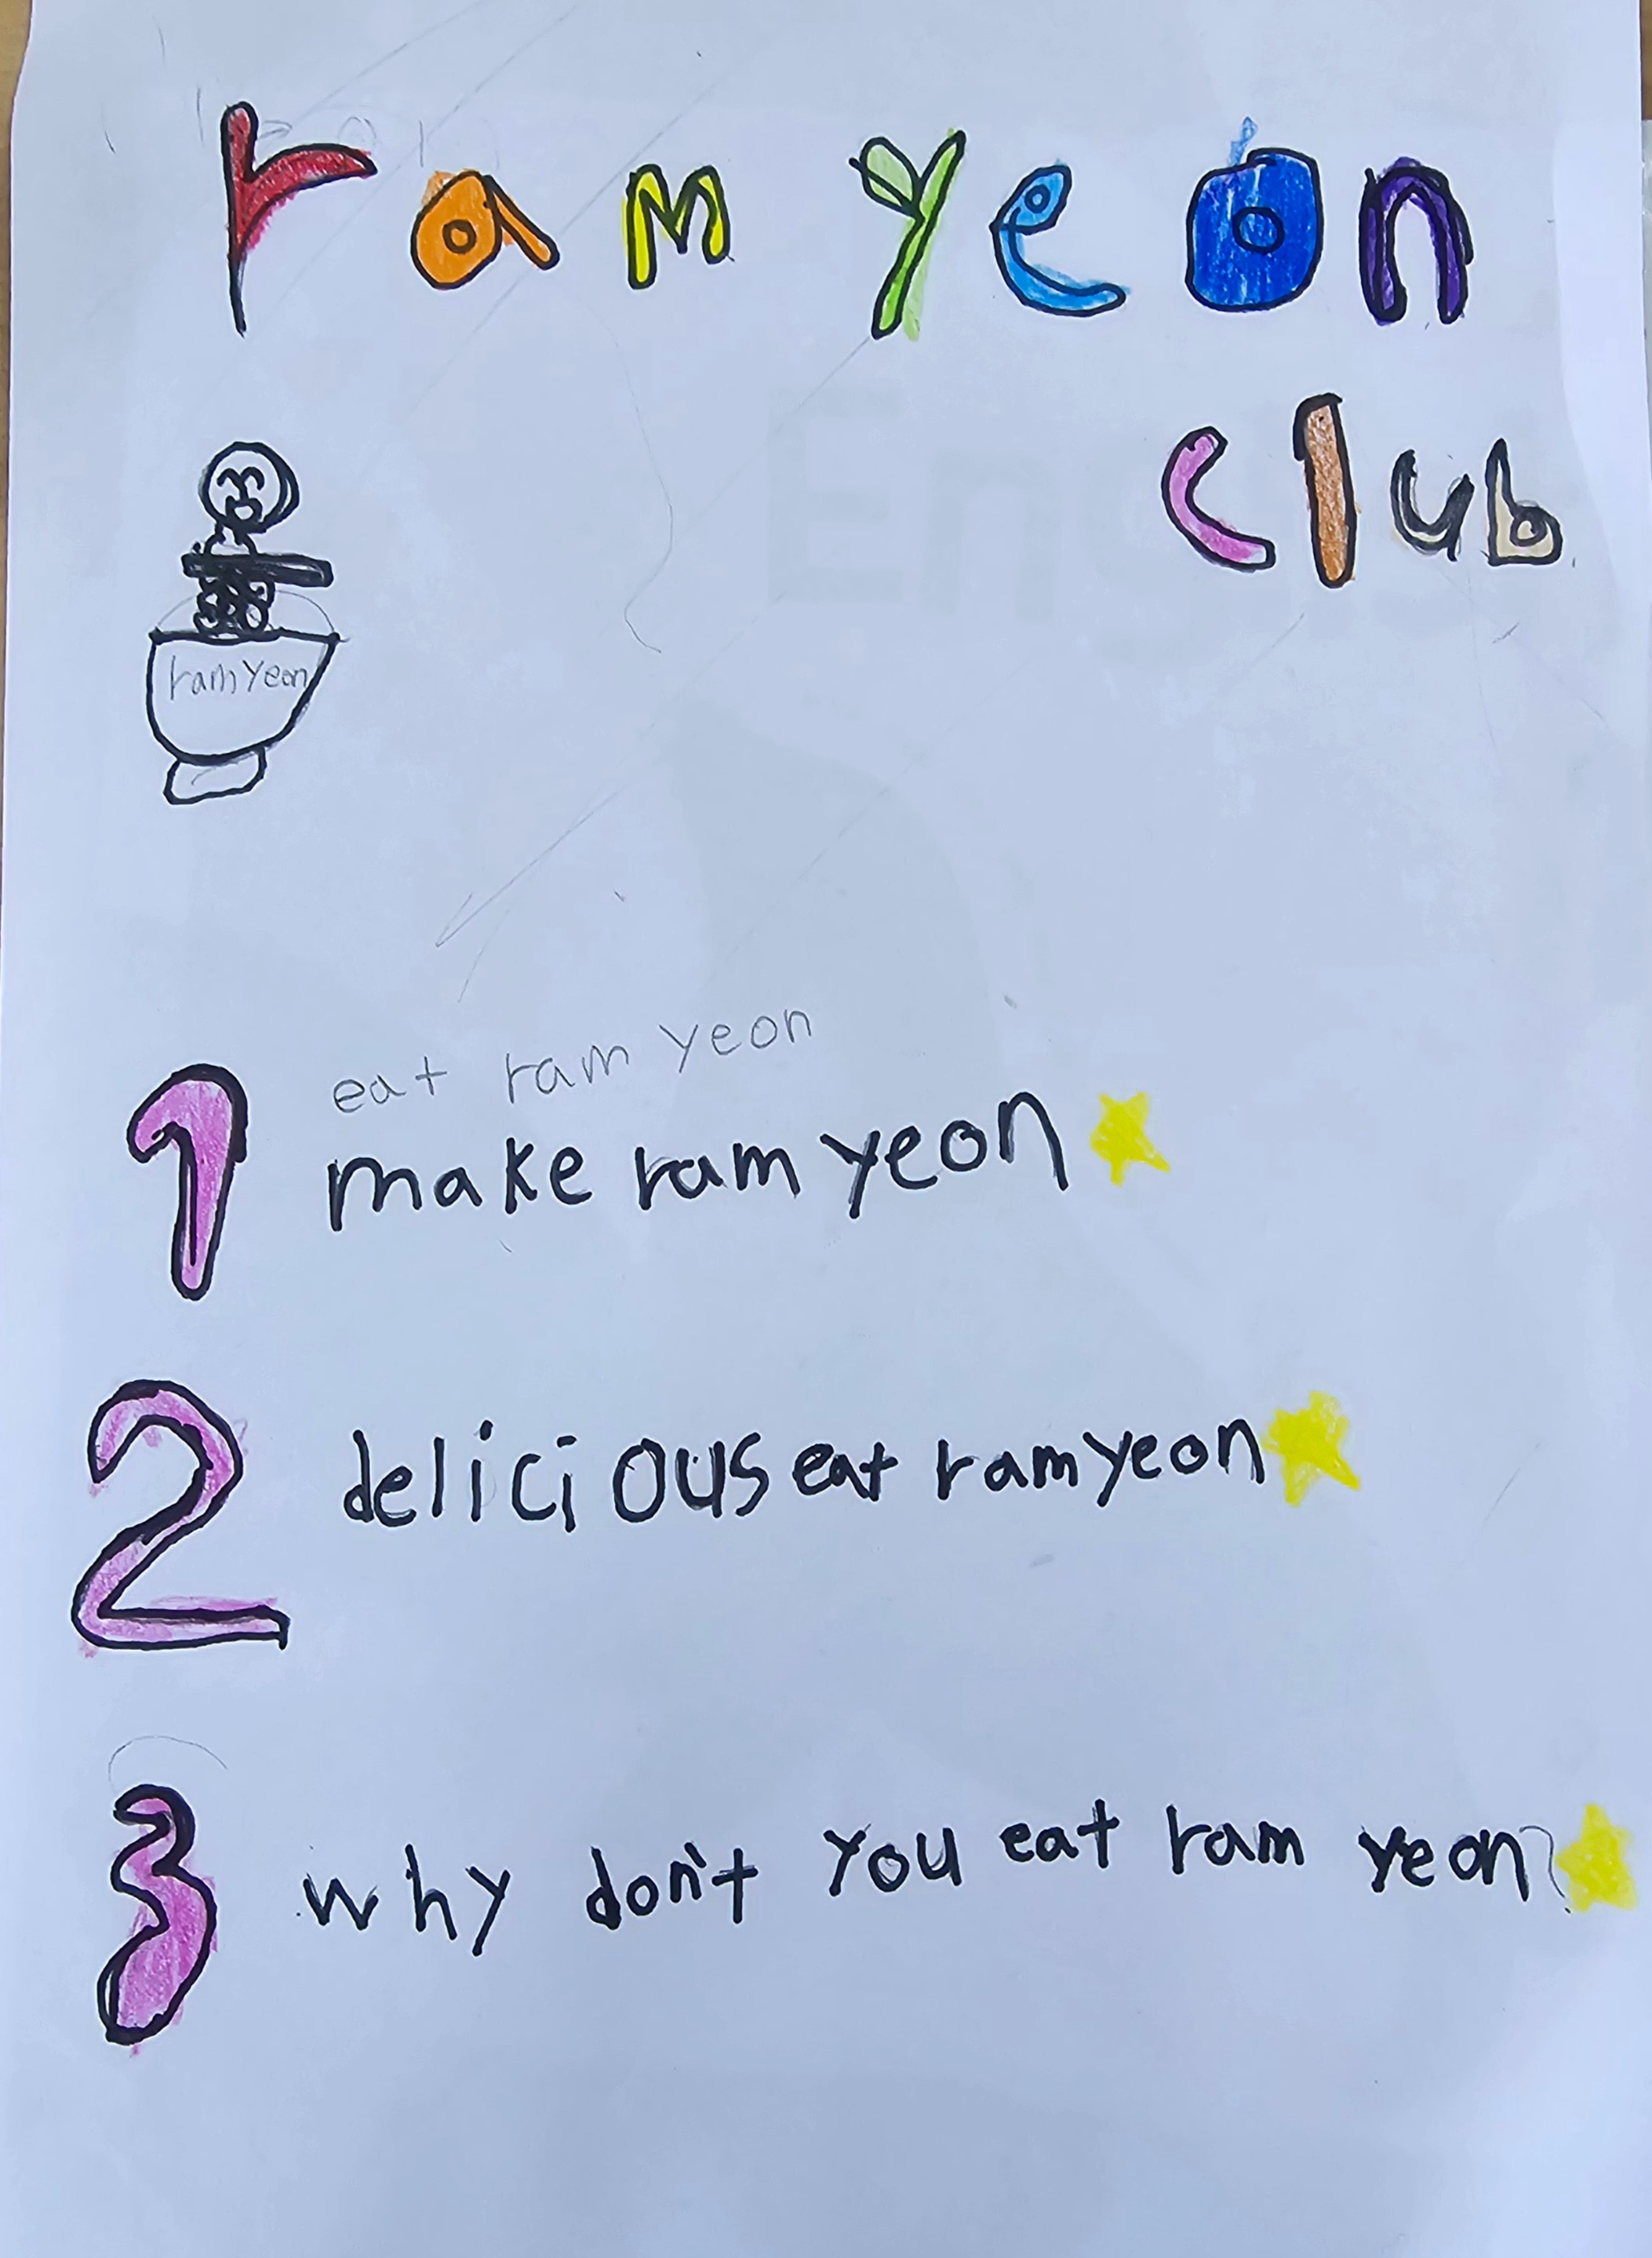 ramyeon
club
ramyeon
eat ramyeon
1 make ramyeon
2 delicious eat ramyeon
3 why don't you eat ram yeon?